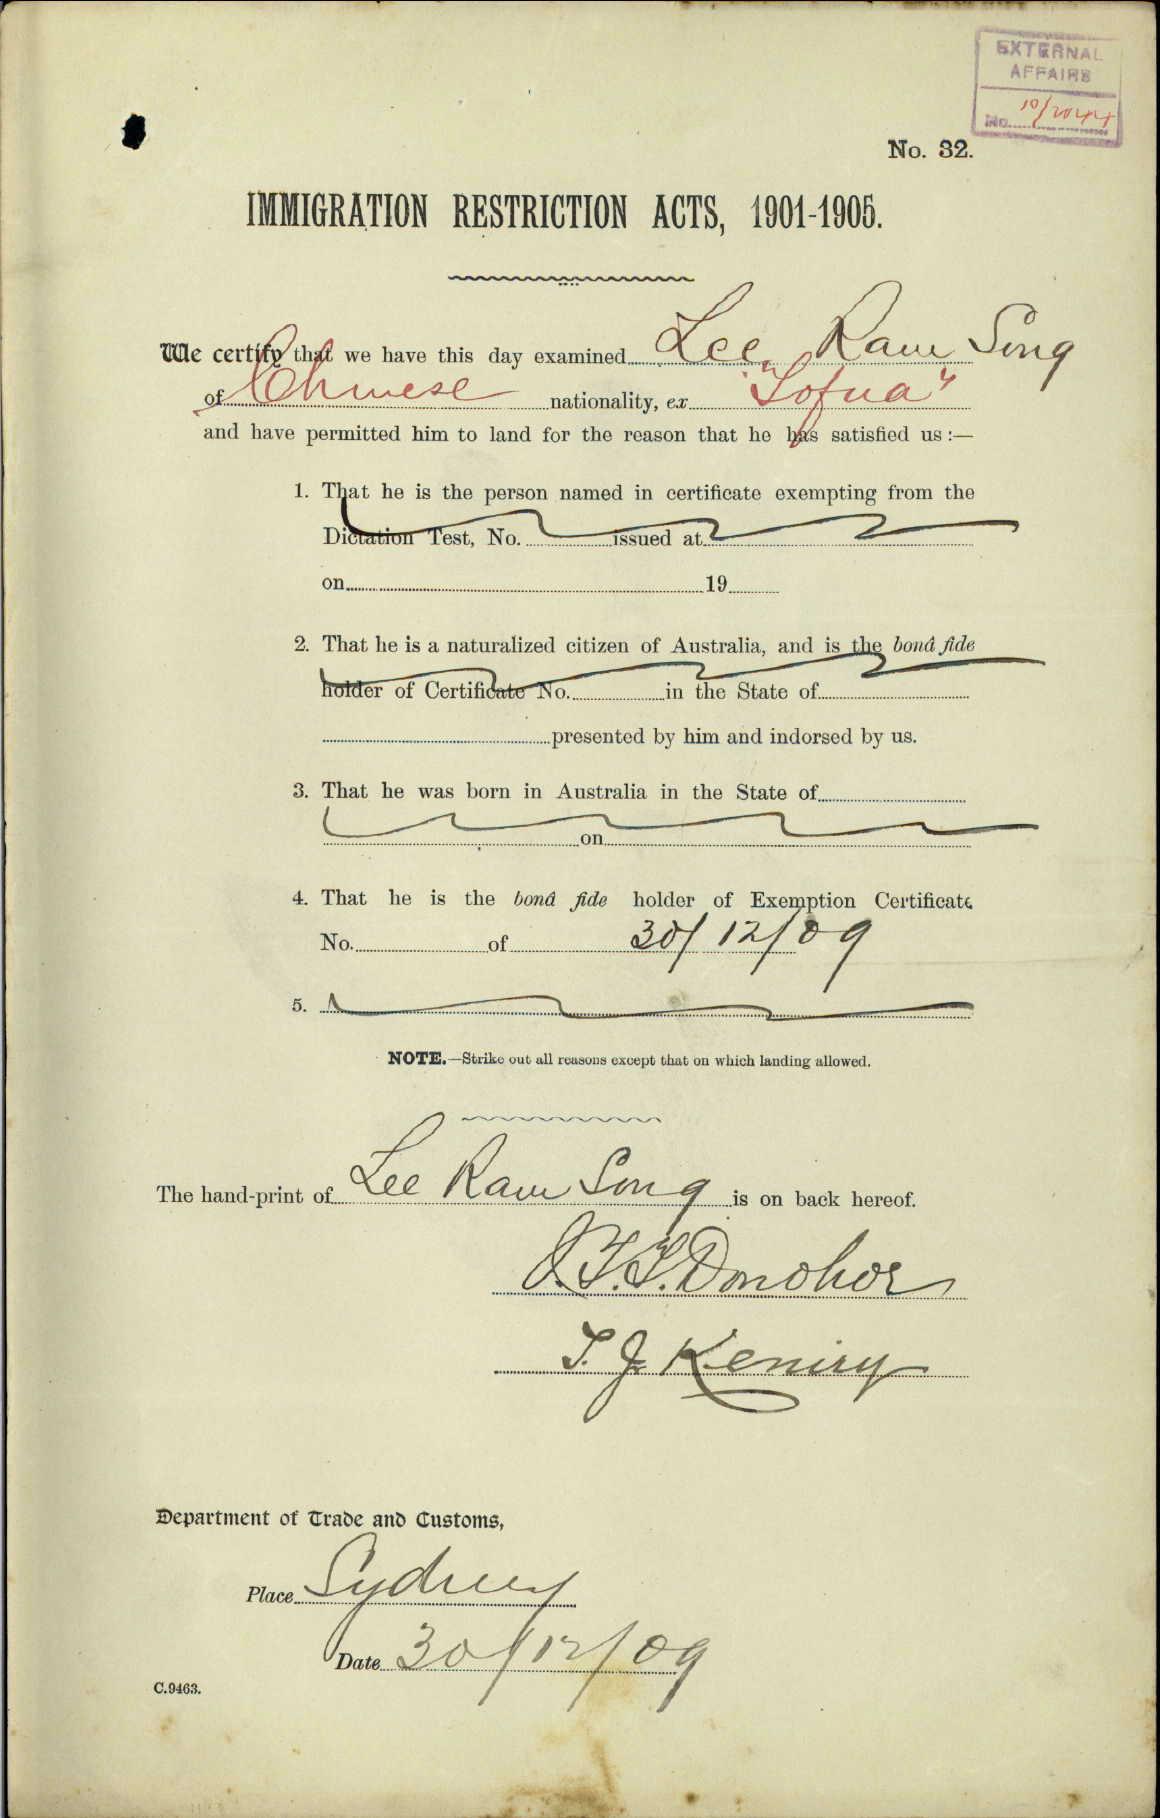 EXTERNAL
AFFAIRS
No. 10/2044
No. 32.
IMMIGRATION RESTRICTION ACTS, 1901-1905.
We certify that we have this day examined Lee Kaw Song
of Chinese nationality, ex "Tofua"
and have permitted him to land for the reason that he has satisfied us :—
1. That he is the person named in certificate exempting from the
Dictation Test, No. issued at
on 19
2. That he is a naturalized citizen of Australia, and is the bonâ fide
holder of Certificate No. in the State of
presented by him and indorsed by us.
3. That he was born in Australia in the State of
on
4. That he is the bonâ fide holder of Exemption Certificate
No. of 30/12/09
5.
NOTE.—Strike out all reasons except that on which landing allowed.
The hand-print of Lee Kaw Song is on back hereof.
J.T.T. Donohoe
T. J. Keniry
Department of Trade and Customs,
Place Sydney
Date 30/12/09
C.9463.